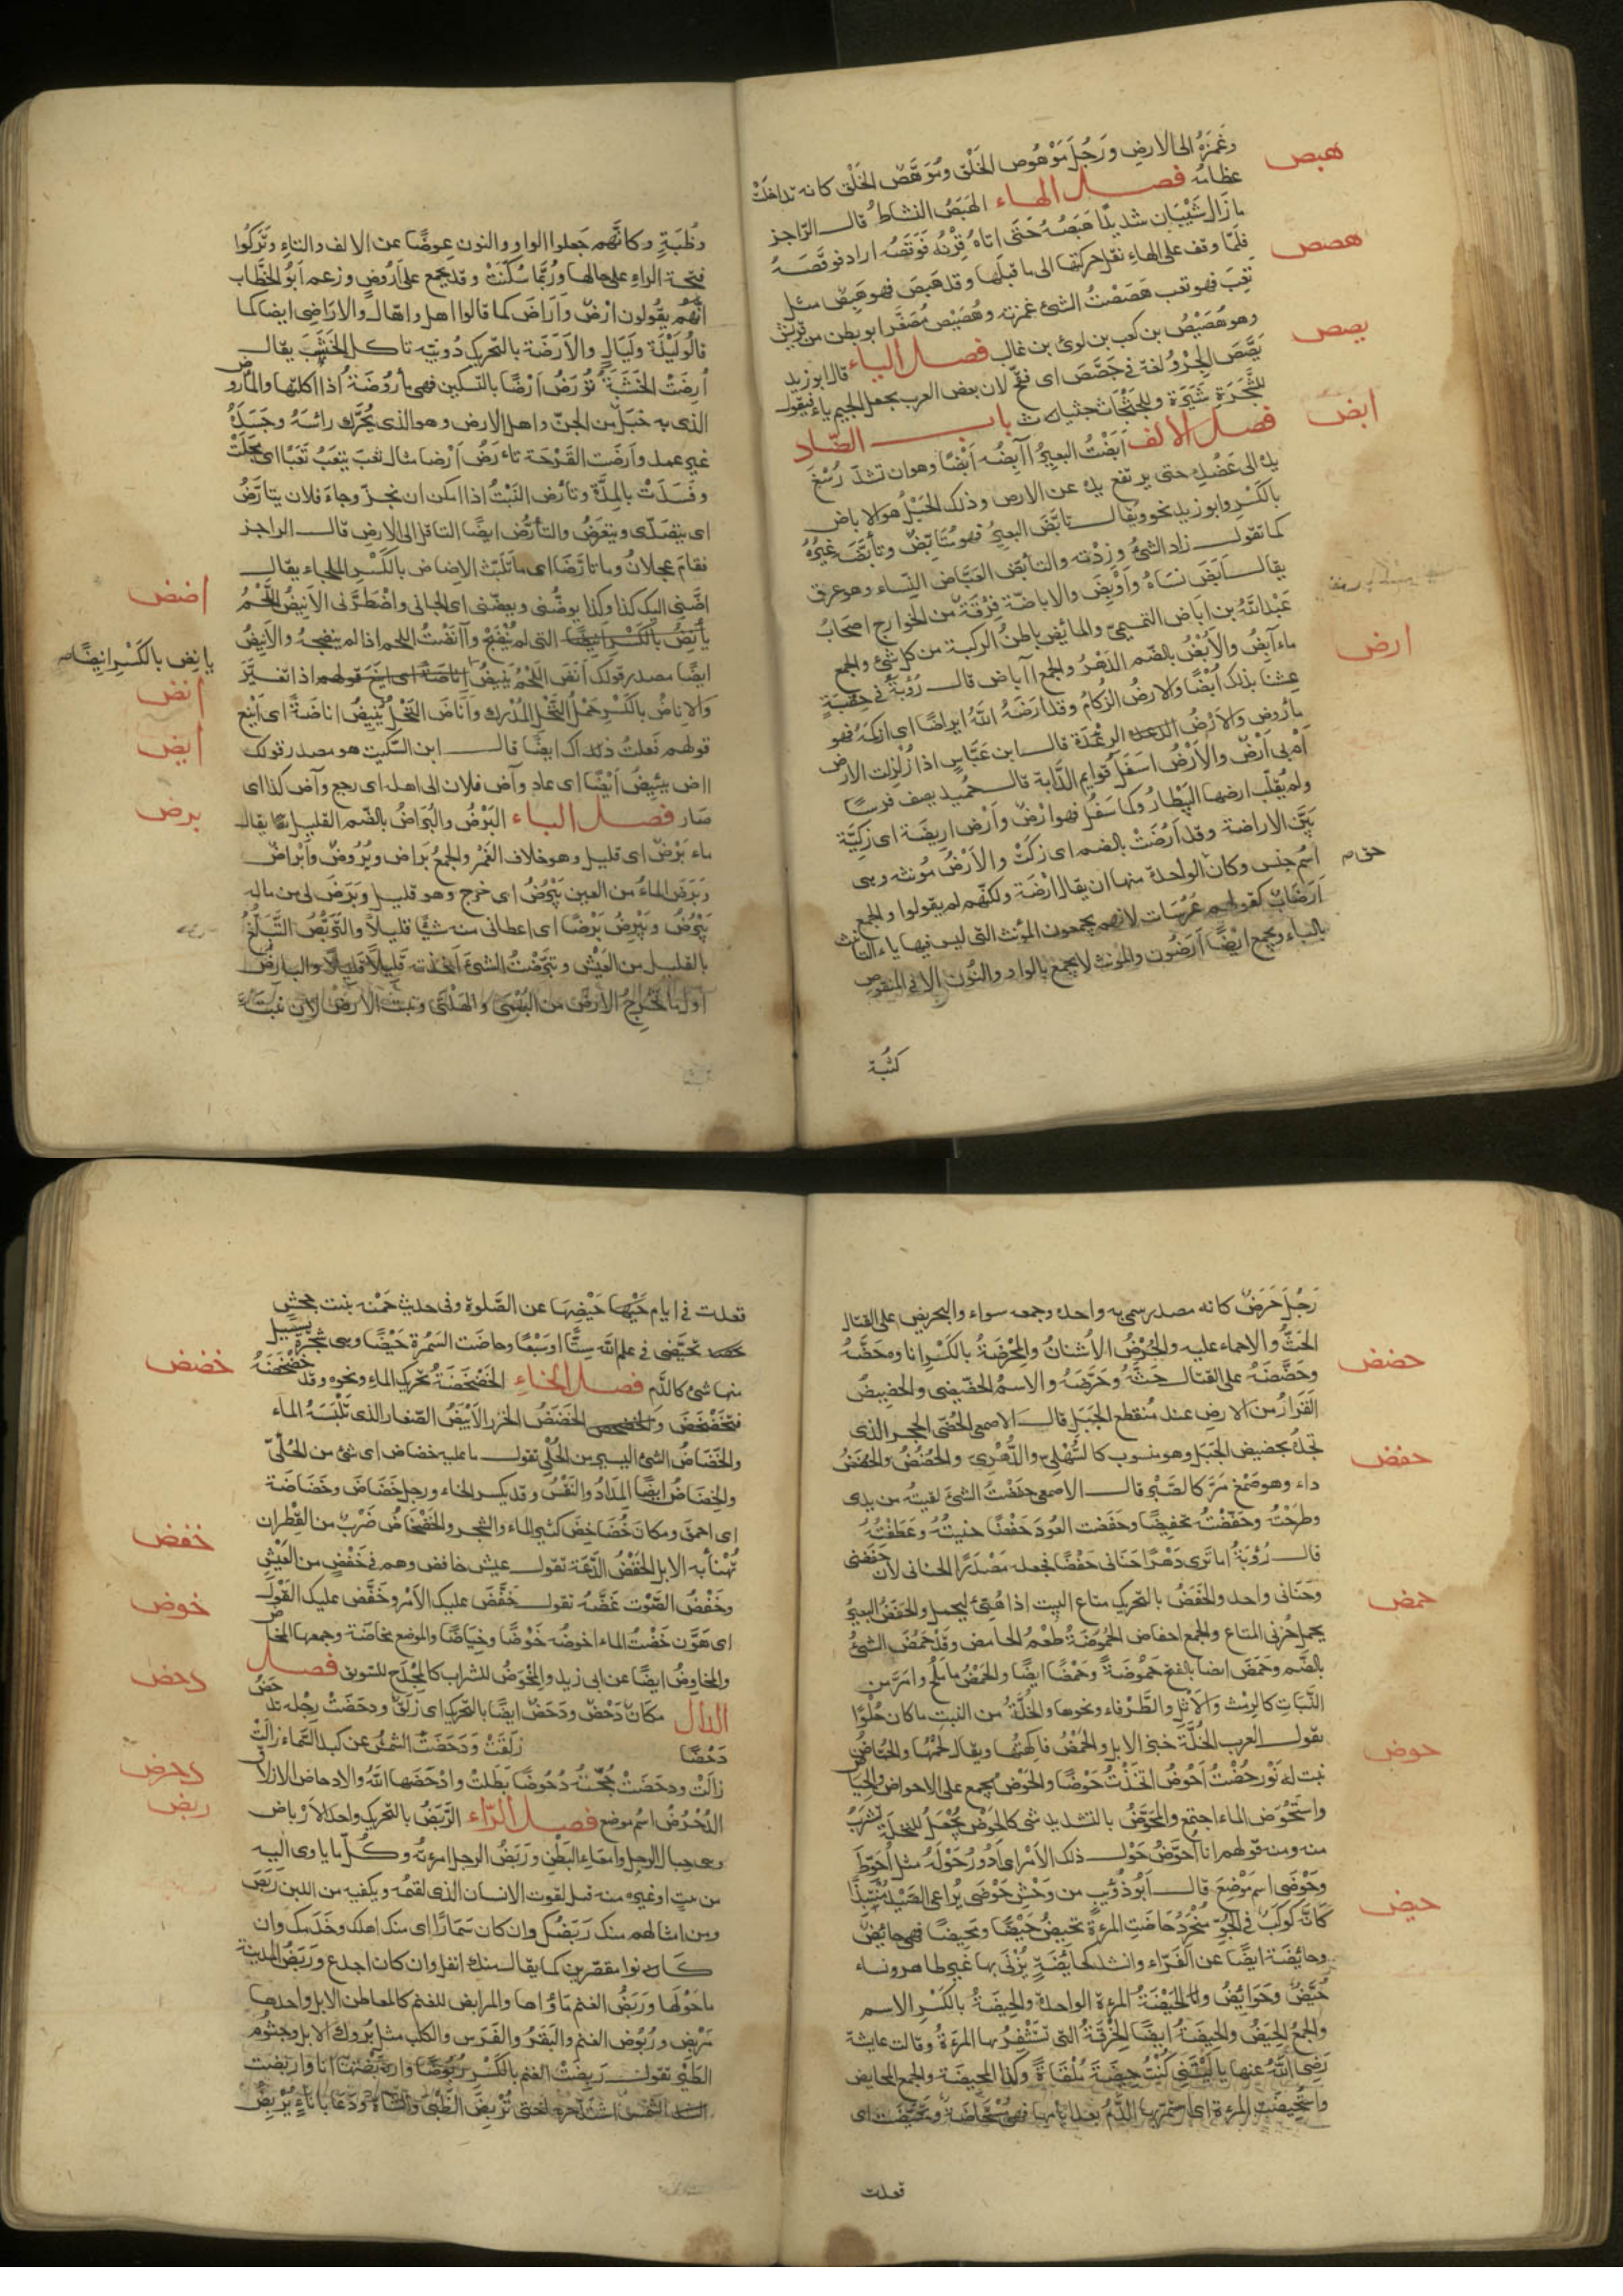 وغمزه الى الارض ورجل موهوص الخلق وموهّص الخلق كانه تداخلت
هبص
عظامه فصل الهاء الهبص النشاط قال الراجز
ما زال شيبان شديدًا هبصه حتى اتاه قرنه فوقصه اراد فوقصه
هصص
فلمّا وقف على الهاء نقل حركتها الى ما قبلها وقد هبص فهو هبص مثل
تعب فهو تعب هصصت الشئ غمزته وهصيص مصغر ابو بطن من قريش
وهو هصيص بن كعب بن لوى بن غالب فصل الياء قال ابو زيد
يصص
يصّص الجرو لغة فى جصّص اى فتح لان بعض العرب يجعل الجيم ياء فيقول
للشجرة شيرة وللجثجاث جثياث باب الضاد
ابض
فصل الالف أبضت البعير آبضه أبضًا وهو ان تشدّ رسغ
يده الى عضده حتى يرتفع يده عن الارض وذلك الحبل هو الاباض
بالكسر وابو زيد نحوه ويقال تأبّض البعير فهو متأبّض وتأبّضه غيره
كما تقول زاد الشئ وزدته والتأبض انقباض النساء وهو عرق
يقال أبض نساه وأوبض والاباضية فرقة من الخوارج اصحاب
عبد الله بن اباض التميمى والمأبض باطن الركبة من كل شئ والجمع
مأآبض والأبض بالضم الدهر والجمع آاباض قال رؤبة فى حقبة
ارض
عشنا بذلك أبضًا والارض الزكام وقد ارضه الله ايراضًا اى ازكمه فهو
مأروض والأرض الرعدة قال ابن عباس اذا زلزلت الارض
ام بى أرض والأرض اسفل قوايم الدابة قال حميد يصف فرسًا
ولم يقلّب ارضها البيطار وكلما سفل فهو ارض وأرض اريضة اى زكيّة
بيّن الاراضة وقد أرضت بالضم اى زكت والارض مونثة وهى
اسم جنس وكان الواحدة منها ان يقال ارضة ولكنهم لم يقولوا والجمع
ارضات كقولهم عرسات لانهم يجمعون المؤنث التى ليس فيها ياء التانيث
بالتاء ويجمع ايضًا أرضون والمونث لا يجمع بالواو والنون الا فى المنقوص
كثبة
وظبة وكانّهم جعلوا الواو والنون عوضًا عن الالف والتاء وتركوا
فتحة الراء على حالها وربّما سكنت وقد يجمع على أروض وزعم ابو الخطاب
انّهم يقولون ارض وآراض كما قالوا اهل واهال والاراضى ايضا كما
قالوا ليلة وليال والأرضة بالتحريك دويبة تاكل الخشب يقال
أرضت الخشبة تؤرض أرضًا بالتسكين فهى مأروضة اذا اكلتها والمأروض
الذى به خبل من الجن واهل الارض وهو الذى يحرّك رائسه وجسده
غير عمد وأرضت القرحة تأرض أرضا مثال تعب يتعب تعبًا اى مجلت
وفسدت بالمدّة وتأرض النبت اذا امكن ان يجزّ وجاء فلان يتأرّض
اى يتصدّى ويتعرض والتأرّض ايضًا التثاقل الى الارض قال الراجز
فقام عجلان وما تأرّضا اى ما تلبّث الاضاض بالكسر الملجاء يقال
اضض
اضّنى اليك كذا وكذا يوضّنى وبيضّنى اى الجانى واضطرّنى الأنيض اللحم
يأنض بالكسر انيضًا التى لم ينضج وآانضت اللحم اذا لم ينضجه والأنيض
يانض بالكسر انيضًا صح
انض
ايضا مصدر قولك أنض اللحم ينيض اناضة اى انيخ قولهم اذا تغيّر
والاناض بالكسر حمل النخل المدرك وأناض النخل ينيض اناضة اى اينع
ايض
قولهم فعلت ذلك ايضًا قال ابن السكيت هو مصدر قولك
ااض يئيض أيضًا اى عاد وآض فلان الى اهله اى رجع وآض كذا اى
برض
صار فصل الباء البرض والبراض بالضم القليل يقال
ماء برض اى قليل وهو خلاف الغمر والجمع براض وبروض وأبراض
وبرض الماء من العين يبرض اى خرج وهو قليل وبرض لى من ماله
يبرض ويبرض برضًا اى اعطانى منه شيئًا قليلاً والتبرّض التبلّغ
بالقليل من العيش وتبرّضت الشئ اخذته قليلاً قليلاً والبارض
اول ما تخرج الارض من البهمى والهلتى وبنت الارض لان نبتة
رجل حرض كانه مصدر سمى به واحده وجمعه سواء والتحريض على القتال
الحثّ والاحماء عليه والحرض الأشنان والمحرضة بالكسر اناوه وحضّه
حضض
وحضّضه على القتال حثّه وحرّضه والاسم الحضّيضى والحضيض
القرار من الارض عند منقطع الجبل قال الاصمعى الحضّى الحجر الذى
تجده بحضيض الجبل وهو منسوب كالسّهلى والدهرى والحضض والحضض
حفض
داء وهو صمغ مرّ كالصّبر قال الاصمعى حفضت الشئ لقيته من يدى
وطرحته وحفّضته تحفيضًا وحفضت العود حفضًا حنيته وعطفته
قال رؤبة اما ترى دهرًا حنانى حفضًا فجعله مصدرًا لحنانى لان حفضنى
وحنانى واحد والحفض بالتحريك متاع البيت اذا هيّئ ليحمل والحفض البعير
حمض
يحمل خرثى المتاع والجمع احفاض الحموضة طعم الحامض وقد حمض الشئ
بالضم وحمض ايضا بالفتح حموضة وحمضًا ايضًا والحمض ما ملح وامرّ من
النبات كالرمث والأثل والطرفاء ونحوها والخلّة من النبت ما كان حلوًا
يقول العرب الخلّة خبز الابل والحمض فاكهتها ويقال لحمها والحمّاض
حوض
نبت له نور حضت أحوض اتخذت حوضًا والحوض يجمع على الاحواض والحياض
واستحوض الماء اجتمع والمحوّض بالتشديد شى كالحوض يجعل للنخلة تشرب
منه ومنه قولهم انا أحوّض حول ذلك الأمر اى أدور حوله مثل أحوّط
وحوضى اسم موضع قال ابو ذؤيب من وحش حوضى يراعى الصّيد منتبذًا
حيض
كانّه كوكب فى الجوّ منجرد حاضت المرءة تحيض حيضًا ومحيضًا فهى حائض
وحائضة ايضًا عن الفرّاء وانشد كحائضة يزنى بها غير طاهر ونساء
حيّض وحوايض والحيضة المرة الواحدة والحيضة بالكسر الاسم
والجمع الحيض والحيضة ايضًا الخرقة التى تستثفر بها المرءة وقالت عايشة
رضى الله عنها ياليتنى كنت حيضة ملقاة وكذا المحيضة والجمع المحايض
واستحيضت المرءة اى استمرّ بها الدّم بعد ايامها فهى مستحاضة وتحيّضت اى
قعدت
قعدت فى ايام حيضها عن الصلوة وفى حديث حمنة بنت جحش
تحيّضى فى علم الله ستًّا او سبعًا وحاضت السمرة حيضًا وهى شجرة يسيل
خضض
منها شئ كالدّم فصل الخاء الخضخضة تحريك الماء ونحوه وقد خضخضه
فتخضخض الخضض الخرز الابيض الصّغار الذى تلبسه الماء
والخضاض الشئ اليسير من الحلى تقول ما عليه خضاض اى شئ من الحلىّ
والخضاض ايضًا المداد والنقس وقد يكسر الخاء ورجل خضاض وخضاضة
اى احمق ومكان خضاخض كثير الماء والشجر والخضخاض ضرب من القطران
خفض
تهنأ به الابل الخفض الدّعة تقول عيش خافض وهم فى خفض من العيش
وخفض الصّوت غضّه تقول خفّض عليك الأمر وخفّض عليك القول
خوض
اى هوّن خضت الماء اخوضه خوضًا وخياضًا والموضع مخاضة وجمعها المخاض
والمخاوض ايضًا عن ابى زيد والمخوض للشراب كالمجدح للسويق فصل
دحض
الدال مكان دحض ودحض ايضًا بالتحريك اى زلق ودحضت رجله تدحض
دحضًا زلقت ودحضت الشمس عن كبد السّماء زالت
زالت ودحضت حجّته دحوضًا بطلت وادحضها الله والادحاض الازلاق
دحرض
الدّحرض اسم موضع فصل الرّاء الرّبض بالتحريك واحد الأرباض
ربض
وهى حبال الرحل وامعاء البطن وربض الرجل امرءته وكلّ ما ياوى اليه
من بيت او غيره منه قيل لقوت الانسان الذى يقيمه ويكفيه من اللبن ربض
ومن امثالهم منك ربضك وان كان سمارًا اى منك اهلك وخدمك وان
كانوا مقصّرين كما يقال منك انفك وان كان اجدع وربض المدينة
ما حولها وربض الغنم مأواها والمرابض للغنم كالمعاطن للابل واحدها
مربض وربوض الغنم والبقر والفرس والكلب مثل بروك الابل وجثوم
الطير تقول ربضت الغنم بالكسر ربوضًا واربضتها انا واربضت
الشمس اشتدّ حرها حتى تربض الظبى والشاة ودعا باناء يربض